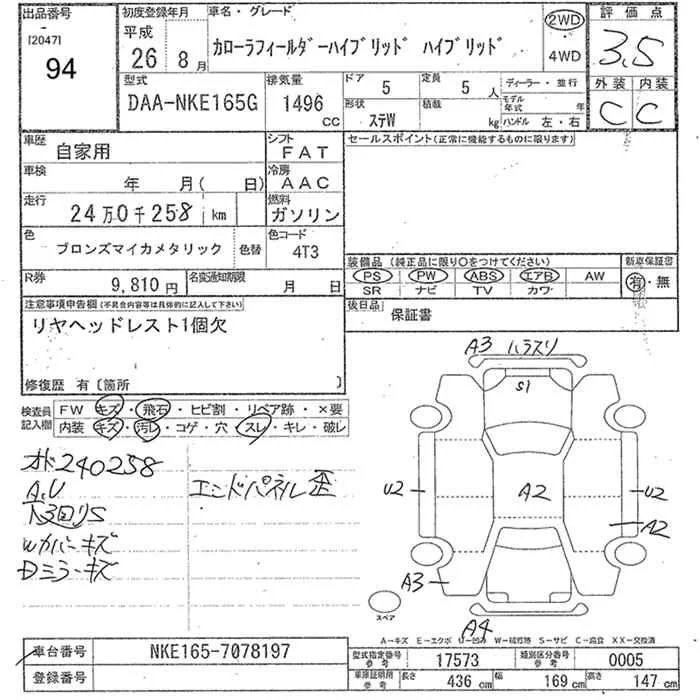 出品番号
[2047]
94
初度登録年月
平成
26 8月
車名・グレード
カローラフィールダーハイブリッド ハイブリッド
2WD
4WD
評価点
3.5
外装 内装
C C
型式
DAA-NKE165G
排気量
1496
cc
ドア 5
定員 5人
形状 ステW
積載 kg
ディーラー・並行
モデル年式 年
ハンドル 左・右
車歴
自家用
シフト
FAT
車検
年 月( 日)
冷房
AAC
走行
24万0千258 km
燃料
ガソリン
色
ブロンズマイカメタリック
色替
色コード
4T3
R券
9,810円
名変通知期限
月 日
セールスポイント(正常に機能するものに限ります)
装備品 (純正品に限り○をつけてください)
PS PW ABS エアB AW
SR ナビ TV カワ
新車保証書
有・無
後日品
保証書
注意事項申告欄(不具合内容等は具体的に記入して下さい)
リヤヘッドレスト1個欠
修復歴 有〔箇所 〕
検査員記入欄
FW キズ・飛石・ヒビ割・リペア跡・×要
内装 キズ・汚レ・コゲ・穴・スレ・キレ・破レ
オド240258
A.U
下回りS
Wカバーキズ
Dミラーキズ
エンドパネル歪
A3 ハラスリ
S1
U2
A2
U2
A2
A3
A4
スペア
A-キズ E-エクボ U-凹み W-補修跡 S-サビ C-腐食 XX-交換済
車台番号
NKE165-7078197
登録番号
型式指定番号
参考
17573
類別区分番号
参考
0005
車庫証明用
参考
長さ 436 cm
幅 169 cm
高さ 147 cm